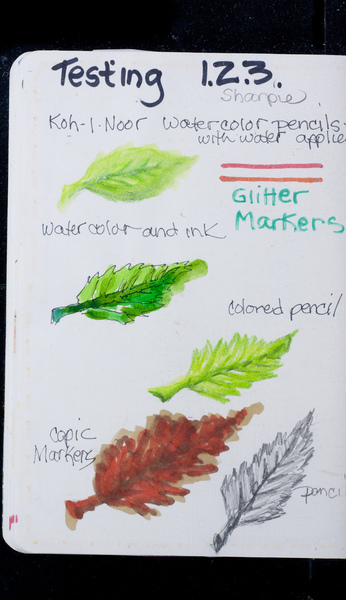 Testing 1.2.3.
Sharpie
Koh-I-Noor Watercolor pencils
with water applie
Glitter
Markers
watercolor and ink
colored pencil
copic
Markers
penci